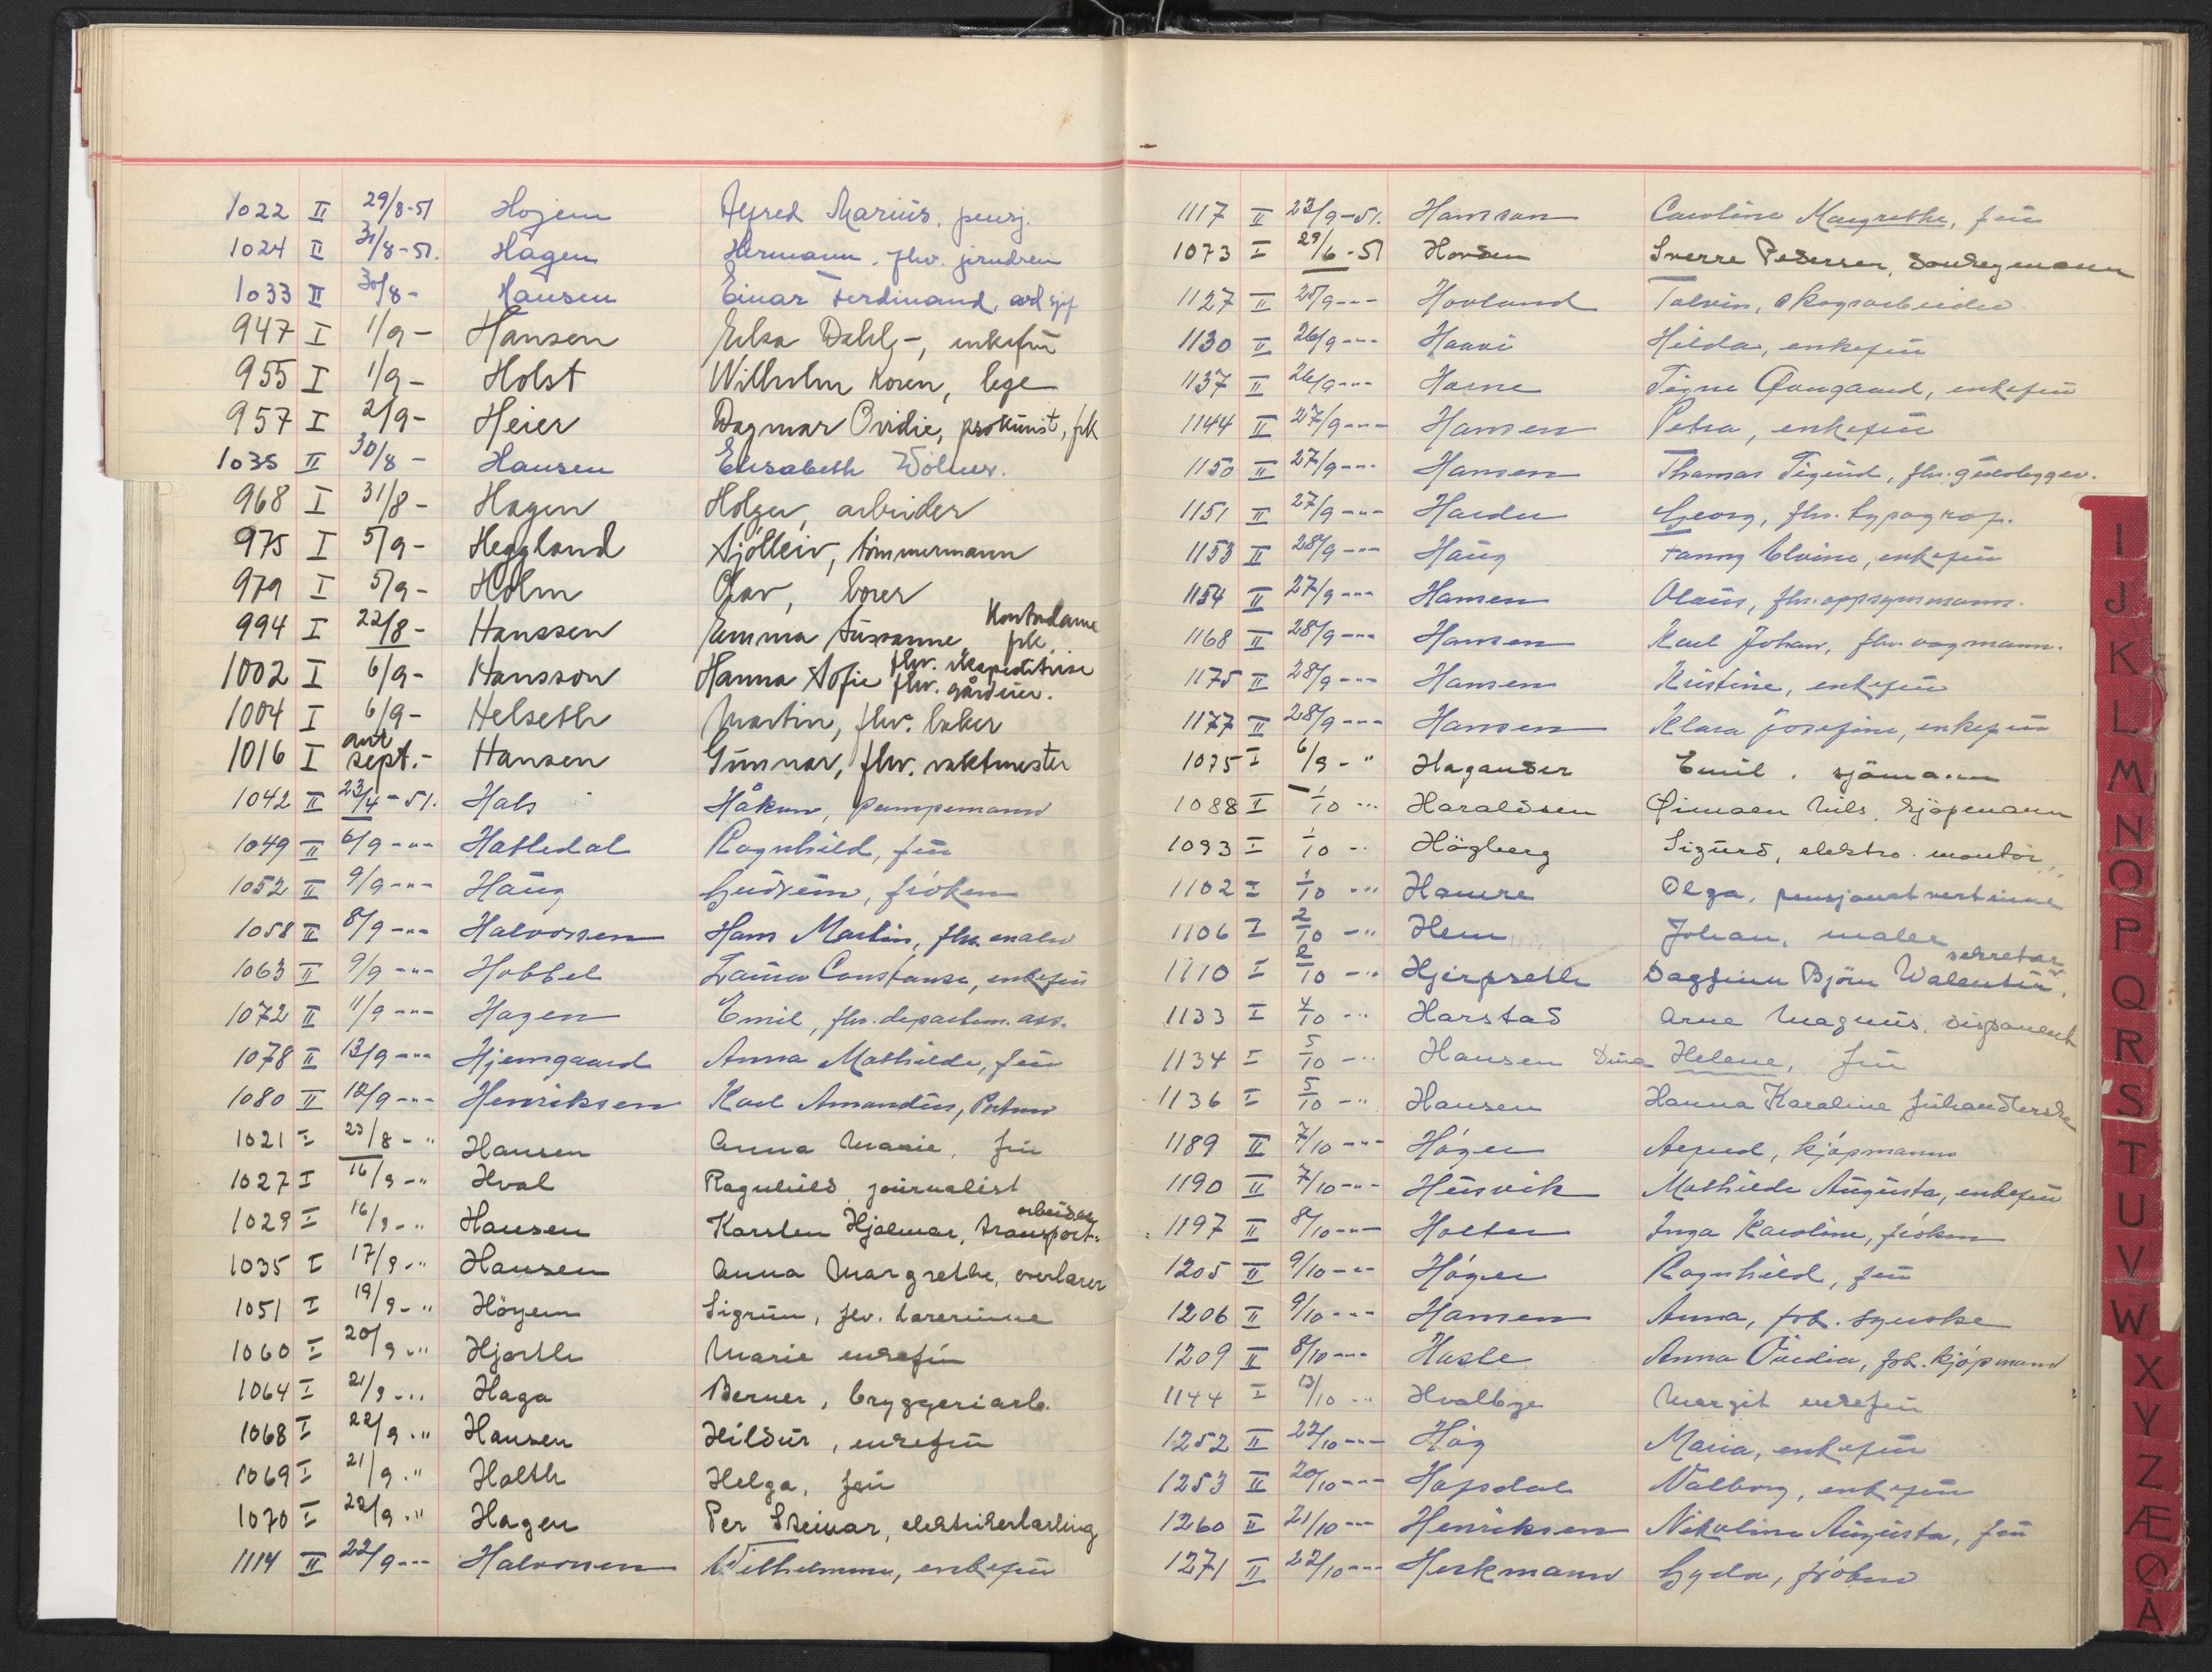 1022 II 29/8-51 Hojem Alfred Marius. pensj.
1024 II 31/8-51. Hagen Hermann. fhv.
1033 II 30/8- Hansen Einar Ferdinand,
947 I 1/9- Hansen Elsa Dahl-, enkefru
955 I 1/9- Holst Wilhelm Koren, lege
957 I 2/9- Heier Dagmar Ovidie, prokurist, frk
1035 II 30/8- Hansen Elisabeth
968 I 31/8- Hagen Holger, arbeider
975 I 5/9- Heggland Kjölleiv, tömmermann
979 I 5/9- Holm Olav, borer
994 I 22/8- Hanssen Emma Susanne Kontordame frk.
1002 I 6/9- Hansson Hanna Sofie fhv. ekspeditrise
1004 I 6/9- Helseth Martin, fhv. baker fhv. gårdeier.
1016 I ant sept.- Hansen Gunnar, fhv. vaktmester
1042 II 23/4-51. Hals Håkon, pumpemann
1049 II 6/9-"- Hatledal Ragnhild, fru
1052 II 9/9-"- Haug Gudrun, fröken
1058 II 8/9-"- Halvorsen Hans Martin, fhv. maler
1063 II 9/9-"- Hobbel Laura Constanse, enkefru
1072 II 11/9-"- Hagen Emil, fhv. departem. ass.
1078 II 13/9-"- Hjemgaard Anna Mathilde, fru
1080 II 12/9-"- Henriksen Karl Amandus,
1021 I 23/8-" Hansen Anna Marie, fru
1027 I 16/9-" Hval Ragnhild, journalist
1029 I 16/9-" Hansen Karsten Hjalmar, transport- arbeider
1035 I 17/9-" Hansen Anna Margrethe, overlærer
1051 I 19/9-" Höyem Sigrun, fhv. lærerinne
1060 I 20/9-" Hjorth Marie enkefru
1064 I 21/9-" Haga Berner, bryggeriarb.
1068 I 22/9-" Hansen Hildur, enkefru
1069 I 21/9-" Holth Helga, fru
1070 I 22/9-" Hagen Per Steinar, elektrikerlærling
1114 II 22/9-"- Halvorsen Wilhelmine, enkefru
1117 II 23/9-51. Hansson Caroline Margrethe, fru
1073 I 29/6-51 Hovden Sverre Pedersen,
1127 II 25/9-"- Hovland Tolvin, skogsarbeider
1130 II 26/9-"- Haavi Hilda, enkefru
1137 II 26/9-"- Signe enkefru
1144 II 27/9-"- Hansen Petra, enkefru
1150 II 27/9-"- Hansen Thomas Sigurd, fhv. gulvlegger.
1151 II 27/9-"- Harder Georg, fhv. typograf.
1153 II 28/9-"- Haug Fanny Elvine, enkefru
1154 II 27/9-"- Hansen Olaus, fhv. oppsynsmann.
1168 II 28/9-"- Hansen Karl Johan, fhv. vognmann.
1175 II 28/9-"- Hansen Kristine, enkefru
1177 II 28/9-"- Hansen Klara Josefine, enkefru
1075 I 6/9-" Hagander Emil. sjömann
1088 I 1/10-" Haraldsen Nils, kjöpmann
1093 I 1/10-" Högberg Sigurd, elektro. montör.
1102 I 1/10-" Hamre Olga, pensjonatvertinne
1106 I 2/10-" Hem Johan, maler
1110 I 2/10-" Hjerpseth Dagfinn Björn Walentin, sekretær
1133 I 4/10-" Harstad Arne Magnus, disponent
1134 I 5/10-" Hansen Dina Helene, fru
1136 I 5/10-" Hansen Hanna Karoline
1189 II 7/10-"- Högen kjöpmann
1190 II 7/10-"- Husvik Mathilde Augusta, enkefru
1197 II 8/10-"- Holter Inga Karoline, fröken
1205 II 9/10-"- Högen Ragnhild, fru
1206 II 9/10-"- Hansen Anna, frk. syerske
1209 II 8/10-"- Hasle Anna frk. kjöpmann
1144 I 13/10-" Hvalbye Margit enkefru
1252 II 22/10-"- Håg Maria, enkefru
1253 II 20/10-"- Hafsdal Valborg, enkefru
1260 II 21/10-"- Henriksen Nikoline Augusta, fru
1271 II 22/10-"- Herkmann Gyda, fröken
I
J
K
L
M
N
O
P
Q
R
S
T
U
V
W
X
Y
Z
Æ
Ø
Å